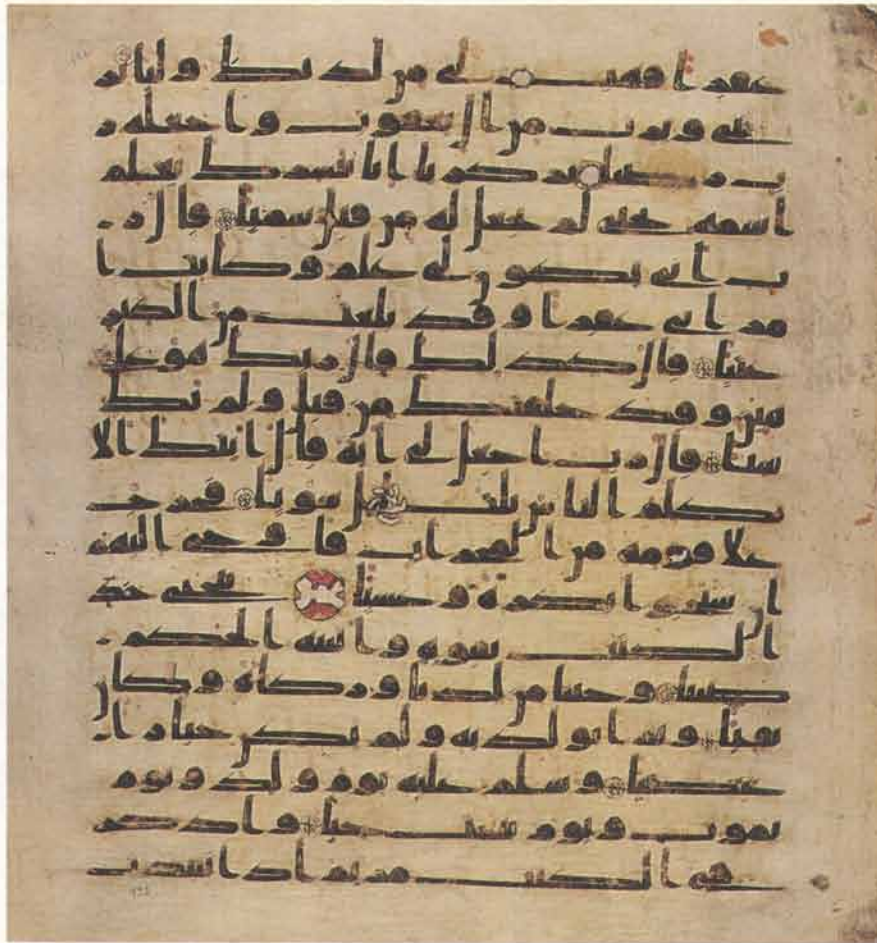 عقرا فهب لي من لدنك وليا ير
ثني ويرث من ال يعقوب واجعله ر
ب رضيا يزكريا انا نبشرك بغلم
اسمه يحيى لم نجعل له من قبل سميا قال ر
ب انى يكون لي غلم وكانت ا
مراتي عقرا وقد بلغت من الكبر
عتيا قال كذلك قال ربك هو علي
هين وقد خلقتك من قبل ولم تك
شيا قال رب اجعل لي اية قال ايتك الا
تكلم الناس ثلث ليل سويا فخرج
علا قومه من المحراب فاوحى اليهم
ان سبحوا بكرة وعشيا ييحيى خذ
الكتب بقوة واتينه الحكم
صبيا وحننا من لدنا وزكاة وكان
تقيا وبرا بولديه ولم يكن جبارا
عصيا وسلم عليه يوم ولد ويوم
يموت ويوم يبعث حيا واذكر
في الكتب مريم اذ انتبذت